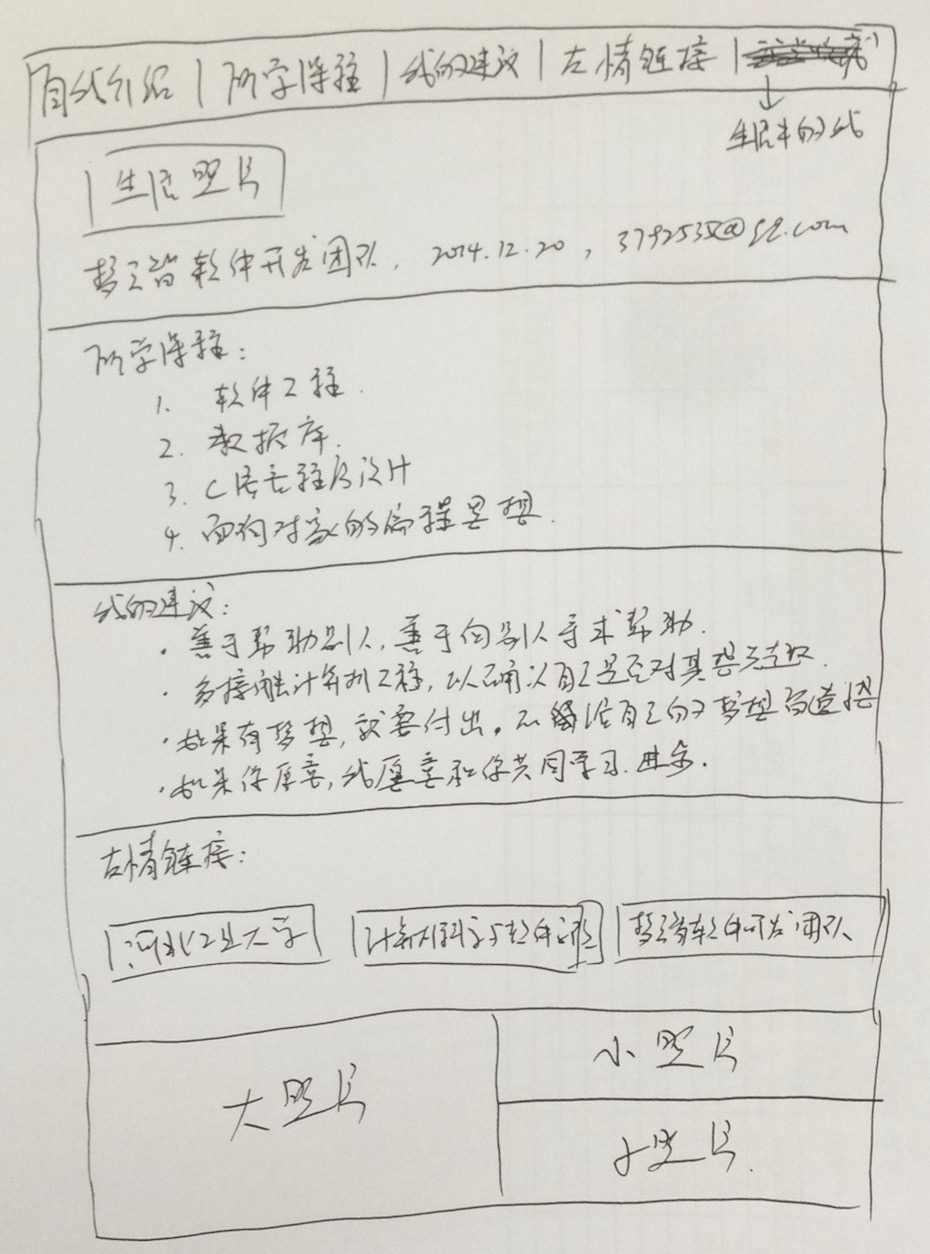 自我介绍 | 所学课程 | 我的建议 | 友情链接 |
生活中的我
生活照片
软件开发团队, 2014.12.20, @qq.com
所学课程:
1. 软件工程.
2. 数据库.
3. C语言程序设计
4. 面向对象的编程思想.
我的建议:
· 善于帮助别人, 善于向别人寻求帮助.
· 多接触计算机工程, 以确认自己是否对其感兴趣.
· 如果有梦想, 就要付出. 不能让自己的梦想有遗憾
· 如果你愿意, 我愿意和你共同学习. 进步.
友情链接:
河北工业大学 计算机科学与软件学院 软件开发团队
大照片
小照片
小照片.